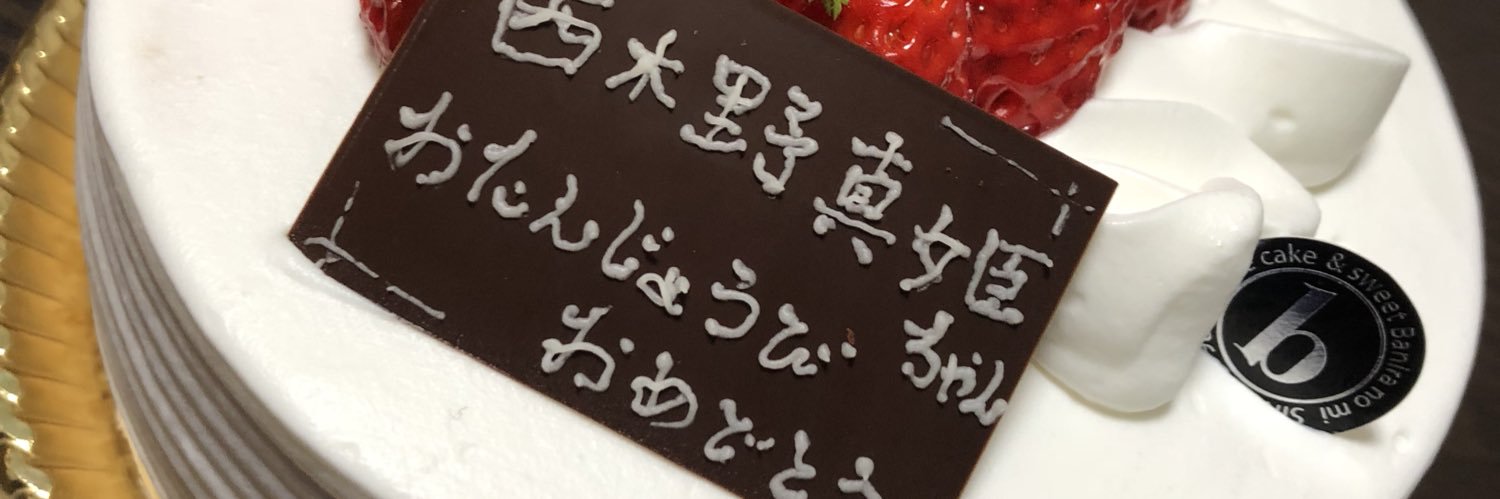 西木野真姫ちゃん
おたんじょうび
おめでとう
cake & sweet Banira no mi
b